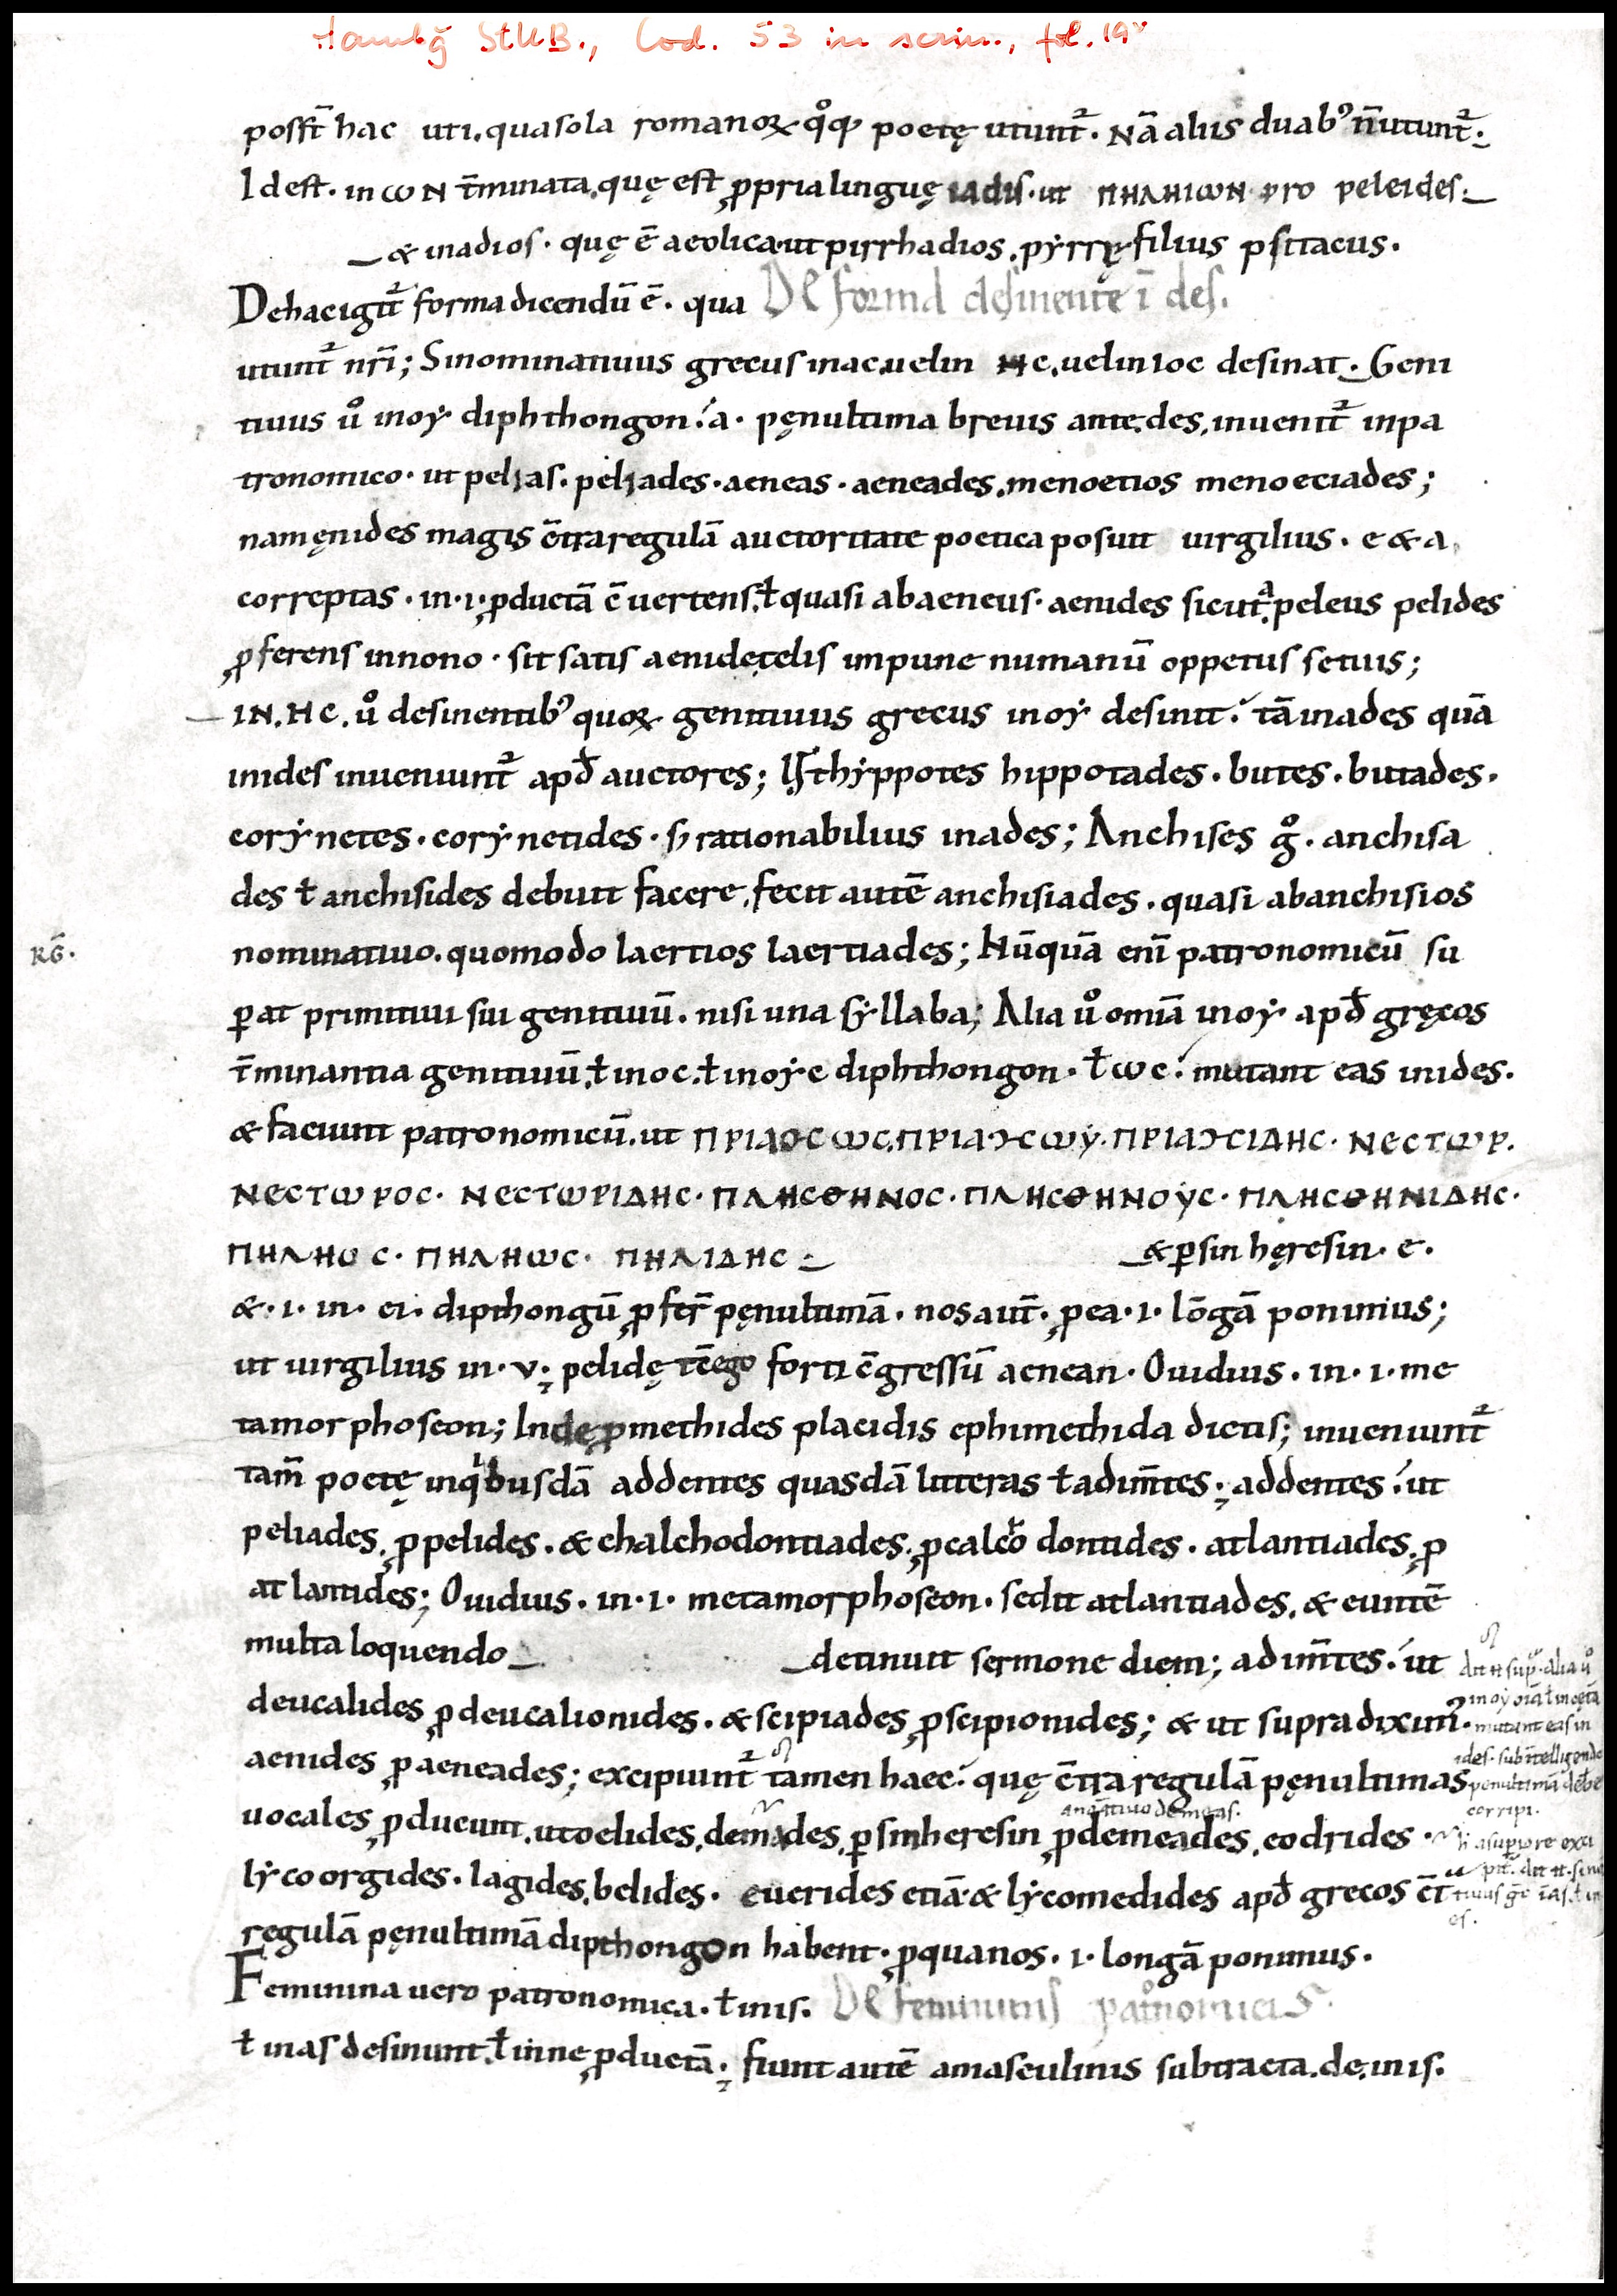 Hambg̃ StUB., Cod. 53 in scrin., fol. 19ᵛ
possꝉ̃ hac uti. quasola romanoꝝ qͦꝙ poetę utunt᷑. Nā aliis duabꝰ n̄ utunt᷑.
Idest. in ωN t̄minata. quę est ꝓpria linguę iadis. ut ΠΗΛΗΙωΝ pro peleides.
& inadios. quę ē aeolica. ut pirrhadios. pẏrrę filius psittacus.
Dehacigit᷑ forma dicendū ē. qua De forma desinente ī des.
utunt᷑ nr̄i; Sinominatiuus grecus inac. uelin HC. uelinioc desinat. Geni
tiuus uͦ inoẏ diphthongon. a. pęnultima breuis ante. des. inuenit᷑ inpa
tronomico. ut pelias. peliades. aeneas. aeneades. menoetios menoeciades;
namęnides magis c̄traregulā auctoritate poetica posuit uirgilius. e & a.
correptas. in. i. ꝓductā c̄uertens. ꝉ quasi abaeneus. aenides sicut. a peleus pelides
ꝓferens innono. sit satis aenidę telis impune numanū oppetus setuis;
IN. HC. uͦ desinentibꝰ quoꝝ genitiuus grecus inoẏ desinit. tā inades quā
inides inueniunt᷑ apđ auctores; Ꝟt hẏppotes hippotades. butes. butades.
corẏnetes. corẏnetides. s; rationabilius inades; Anchises gͦ. anchisa
des ꝉ anchisides debuit facere. fecit autē anchisiades. quasi abanchisios
RG̃.
nominatiuo. quomodo laertios laertiades; Nūquā enī patronomicū su
ꝑat primitiui sui genitiuū. nisi una sẏllaba; Alia uͦ omīa inoẏ apđ gręcos
t̄minantia genitiuū. ꝉ inoc. ꝉ inoẏc diphthongon. ꝉ ωc. mutant eas inides.
& faciunt patronomicū. ut ΠΡΙΑΟCωC. ΠΡΙΑϽCωẎ. ΠΡΙΑϽCΙΔΗC. ΝΕCΤωΡ.
ΝΕCΤωΡΟC. ΝΕCΤωΡΙΔΗC. ΠΛΗCΘΗΝΟC. ΠΛΗCΘΗΝΟẎC. ΠΛΗCΘΗΝΙΔΗC.
ΠΗΛΗΟC. ΠΗΛΗωC. ΠΗΛΙΔΗC & ꝑsin hęresin. e.
&. i. in. ei. dipthongū ꝓfer̄ pęnultimā. nosaut̄. ꝓ ea. i. lōgā ponimus;
ut uirgilius in. v. pelidę tc̄ego forti c̄gressū aenean. Ouidius. in. i. me
tamorphoseon; Inde ꝓmethides placidis ephimethida dictis; inueniunt᷑
tam̄ poetę inqͥbusdā addentes quasdā litteras ꝉ adim̄tes. addentes. ut
peliades. ꝓ pelides. & chalchodontiades. ꝓ calco dontides. atlantiades. ꝓ
atlantides; Ouidius. in. i. metamorphoseon. sedit atlantiades. & euntē
multa loquendo detinuit sermone diem; adim̄tes. ut
deucalides ꝓ deucalionides. & scipiades ꝓ scipionides; & ut supra diximꝰ.
aenides ꝓ aeneades; excipiunt᷑ tamen haec. quę c̄tra regulā pęnultimas
uocales ꝓducunt. utoelides. demades. ꝑ sinheresin ꝓ demeades. codrides.
lẏcoorgides. lagides. belides. euerides etiā & lẏcomedides apđ grecos c̄t
regulā pęnultimā dipthongon habent. ꝓ quanos. i. longā ponimus.
Feminina uero patronomica. ꝉ inis. De femininis patͦnomicis.
ꝉ inas desinunt. ꝉ inne ꝓductā. fiunt autē amasculinis subtracta. de. inis.
alia uͦ
mutant eas in
des. subītelligendo
penultimā
corripi.